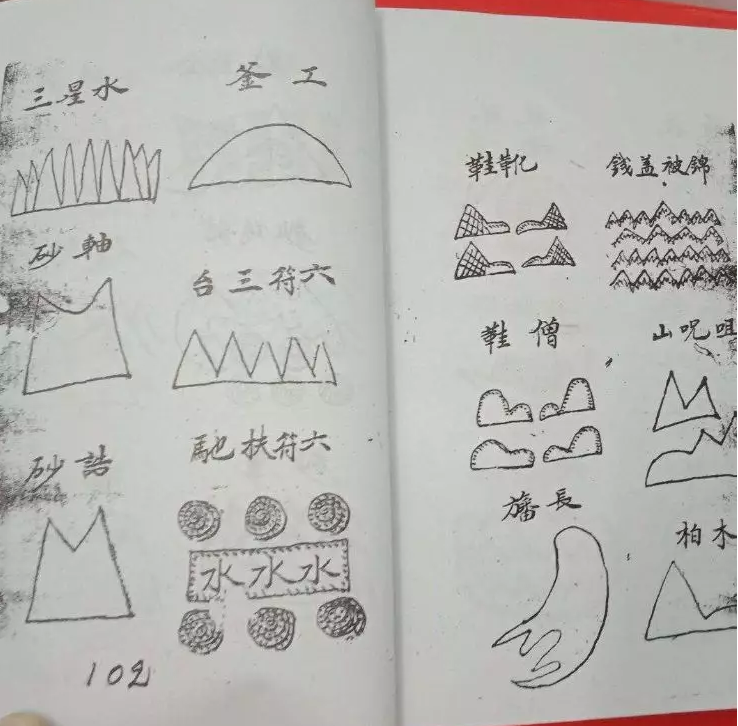 錦被盖錢
靴鞋
咀呪山
僧鞋
長旛
木柏
工釜
水星三
軸砂
六符三台
六符扶馳
誥砂
水水水
102